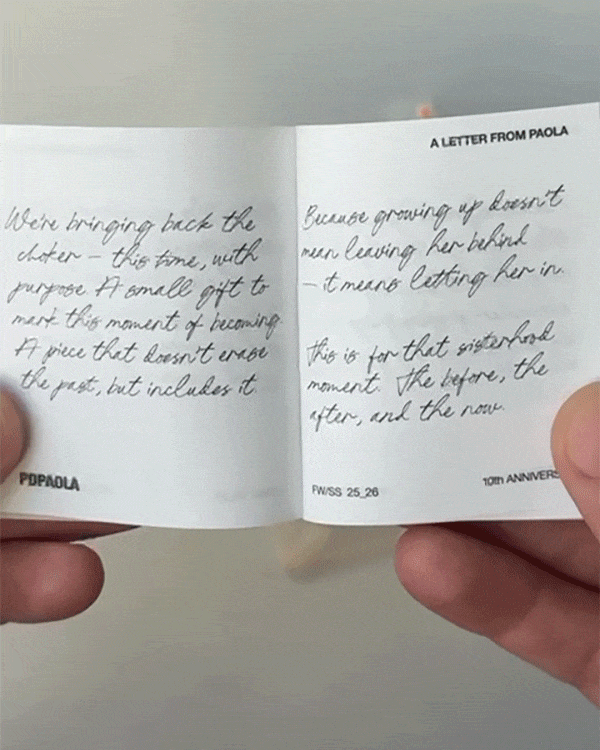 We're bringing back the
choker – this time, with
purpose A small gift to
mark this moment of becoming.
A piece that doesn't erase
the past, but includes it.
PDPAOLA
A LETTER FROM PAOLA
Because growing up doesn't
mean leaving her behind
– it means letting her in.
This is for that sisterhood
moment. The before, the
after, and the now.
FW/SS 25_26
10th ANNIVERS